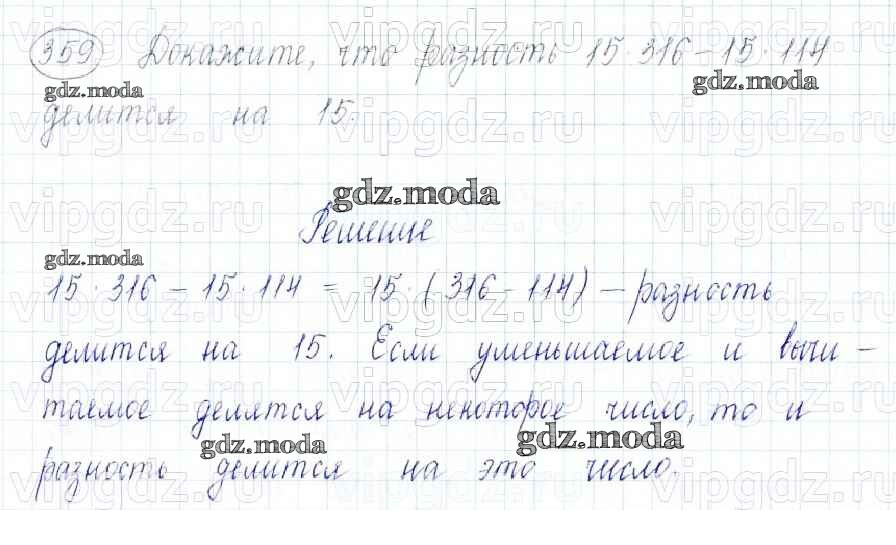 359 Докажите, что разность 15·316 – 15·114
gdz.moda gdz.moda
делится на 15.
gdz.moda
Решение
gdz.moda
15·316 – 15·114 = 15·(316 – 114) – разность
делится на 15. Если уменьшаемое и вычи –
таемое делятся на некоторое число, то и
gdz.moda gdz.moda
разность делится на это число.
vipgdz.ru vipgdz.ru vipgdz.ru
vipgdz.ru vipgdz.ru vipgdz.ru
vipgdz.ru vipgdz.ru vipgdz.ru
vipgdz.ru vipgdz.ru vipgdz.ru
vipgdz.ru vipgdz.ru vipgdz.ru
vipgdz.ru vipgdz.ru vipgdz.ru